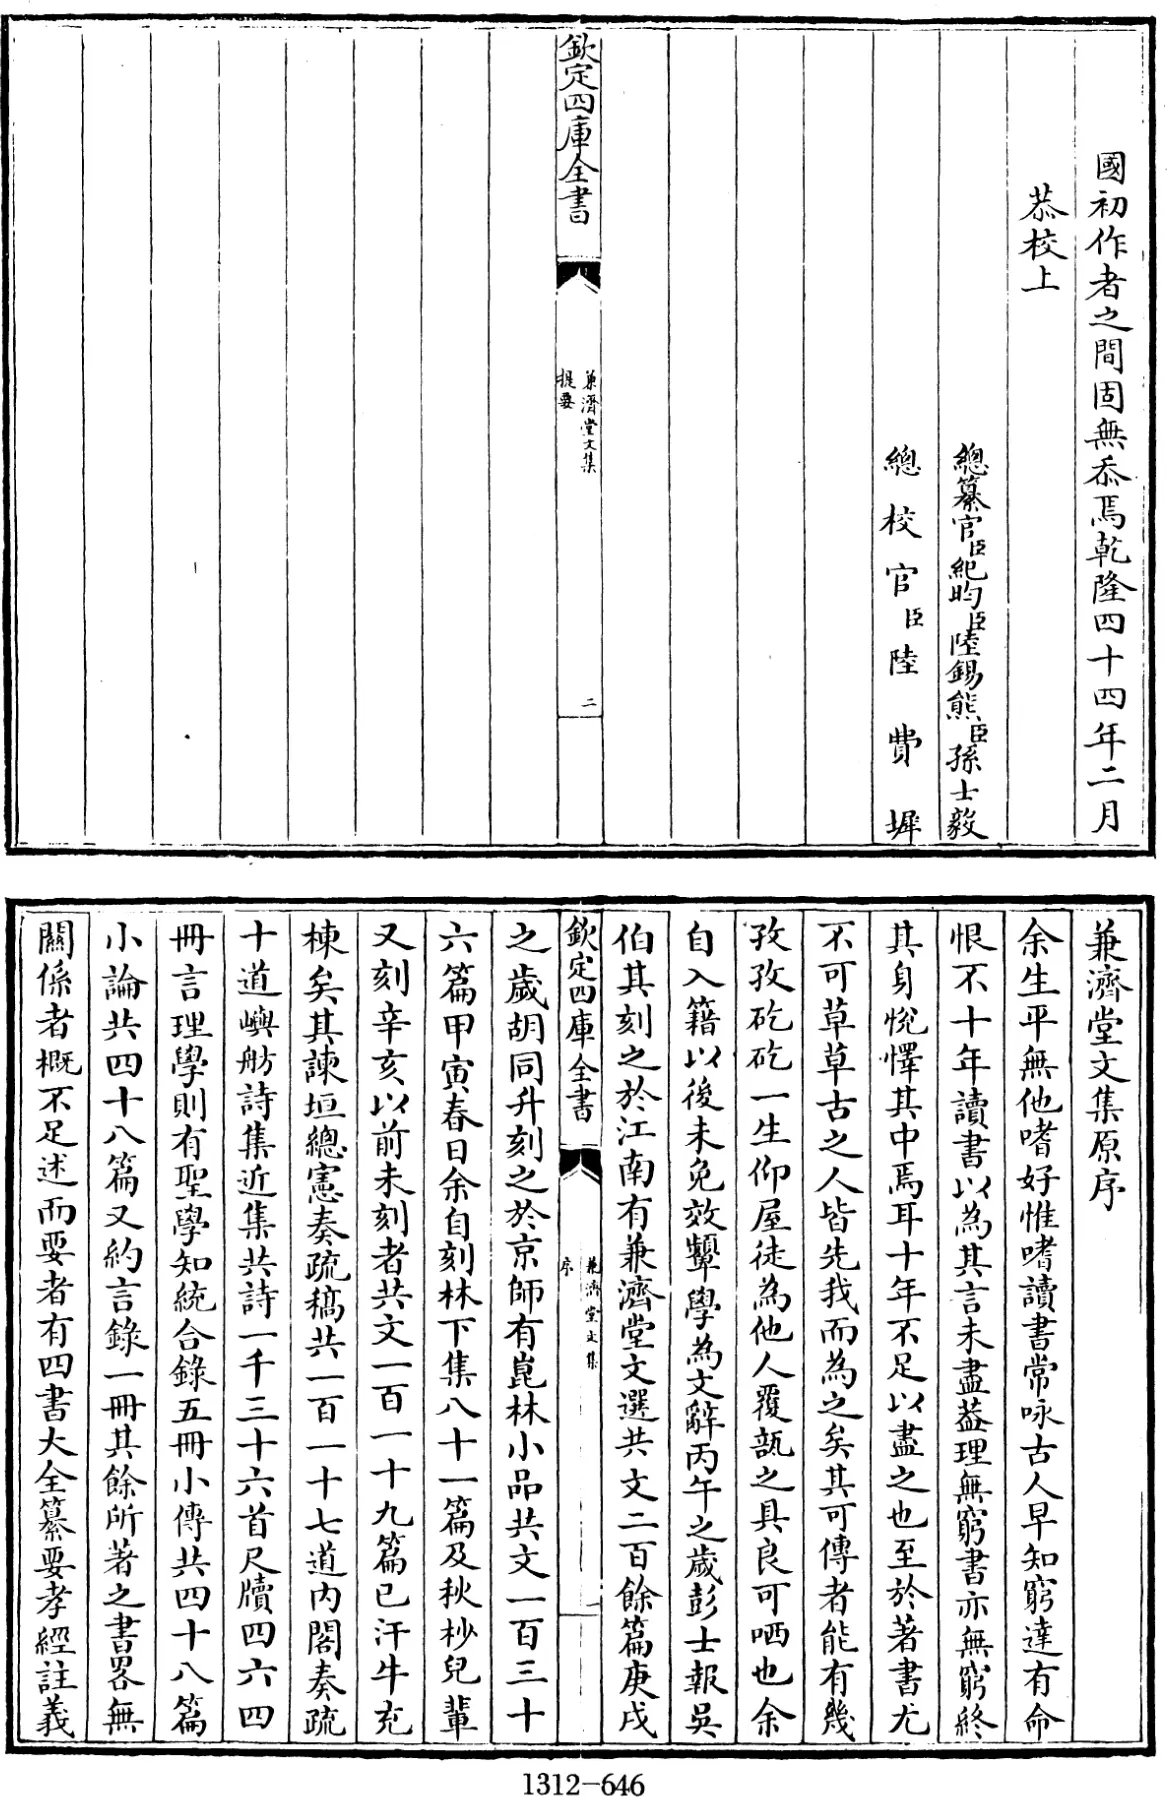 國初作者之間固無忝焉乾隆四十四年二月
恭校上
總纂官臣紀昀臣陸錫熊臣孫士毅
總校官臣陸費墀
欽定四庫全書
兼濟堂文集
提要
二
兼濟堂文集原序
余生平無他嗜好惟嗜讀書常咏古人早知窮達有命
恨不十年讀書以為其言未盡葢理無窮書亦無窮終
其身悅懌其中焉耳十年不足以盡之也至於著書尤
不可草草古之人皆先我而為之矣其可傳者能有幾
孜孜矻矻一生仰屋徒為他人覆瓿之具良可哂也余
自入籍以後未免效顰學為文辭丙午之歲彭士報吳
伯其刻之於江南有兼濟堂文選共文二百餘篇庚戌
欽定四庫全書
兼濟堂文集
序
一
之歲胡同升刻之於京師有崑林小品共文一百三十
六篇甲寅春日余自刻林下集八十一篇及秋杪兒輩
又刻辛亥以前未刻者共文一百一十九篇已汗牛充
棟矣其諫垣總憲奏疏稿共一百一十七道內閣奏疏
十道嶼舫詩集近集共詩一千三十六首尺牘四六四
冊言理學則有聖學知統合錄五冊小傳共四十八篇
小論共四十八篇又約言錄一冊其餘所著之書畧無
關係者概不足述而要者有四書大全纂要孝經註義
1312-646